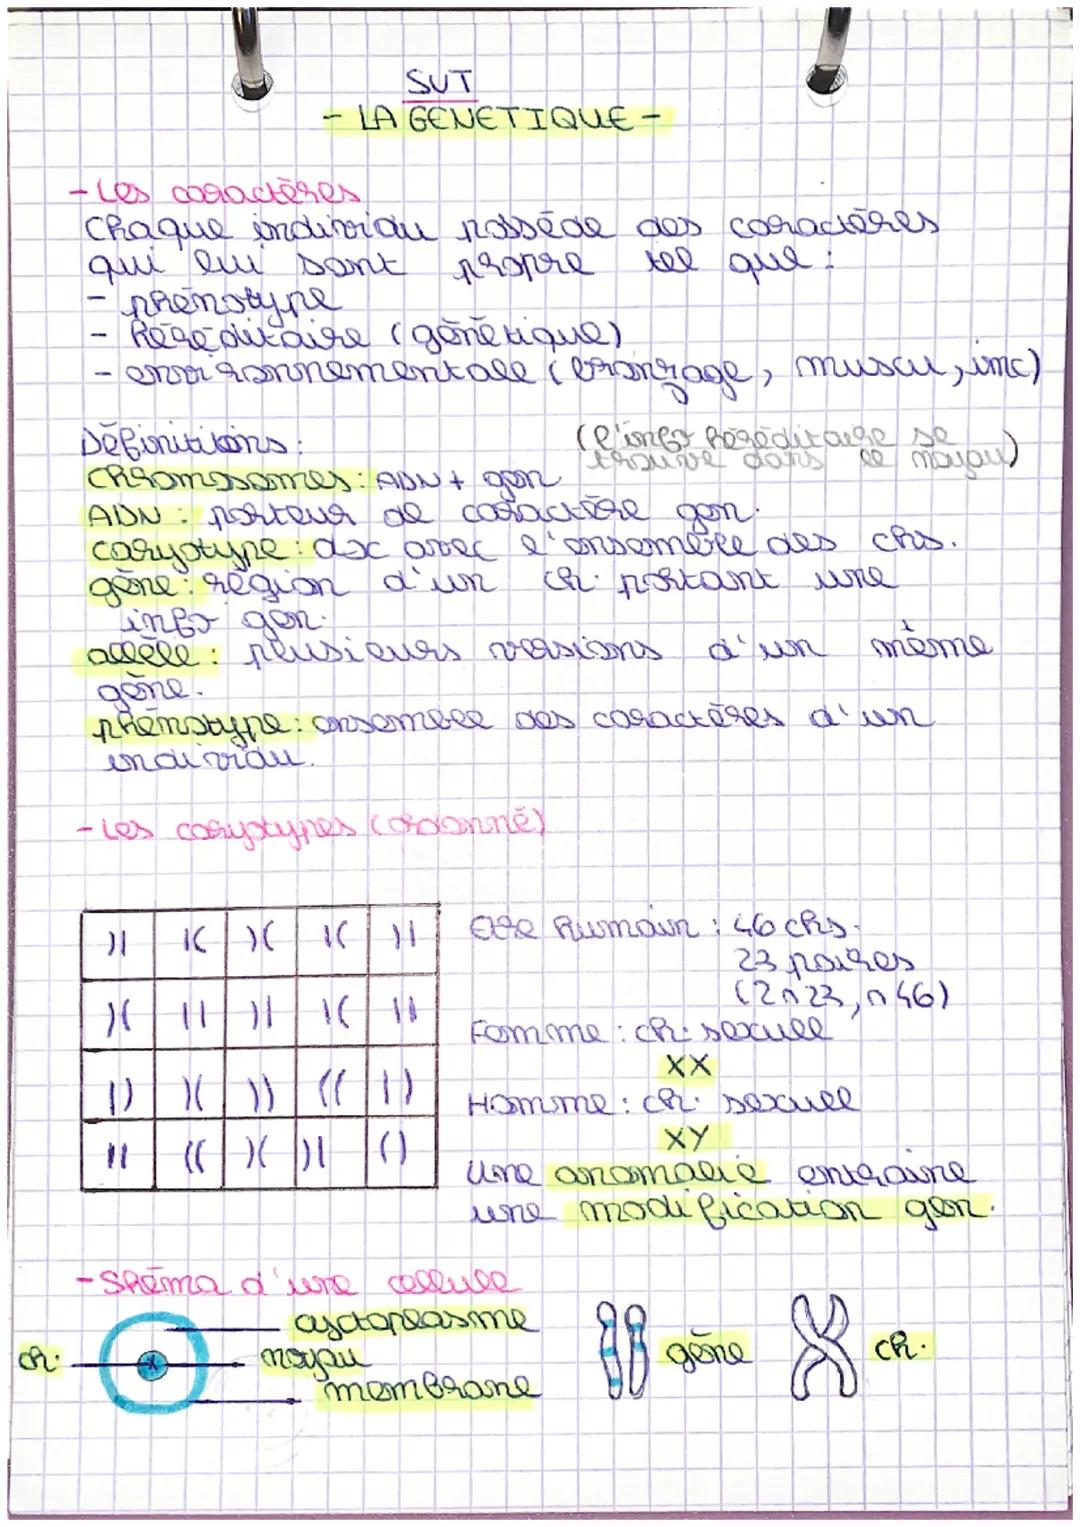 SVT
- LA GENETIQUE -
- Les caractères
Chaque individu possède des caractères
qui lui sont propre tel que :
- phénotype
- héréditaire (génétique)
- environnementale (bronzage, muscu, imc)
Définitions :
(l'info héréditaire se
trouve dans le noyau)
chromosomes : ADN + gen
ADN : porteur de caractère gen.
caryotype : doc avec l'ensemble des chs.
gène : région d'un ch. portant une
info gen.
allèle : plusieurs versions d'un même
gène.
phénotype : ensemble des caractères d'un
individu.
- Les caryotypes (ordonné)
Etre humain : 46 chs.
23 paires
(2n23, n46)
Femme : ch. sexuel
XX
Homme : ch. sexuel
XY
Une anomalie entraine
une modification gen.
- Shéma d'une cellule
cyctoplasme
ch.
noyau
membrane
gène
ch.